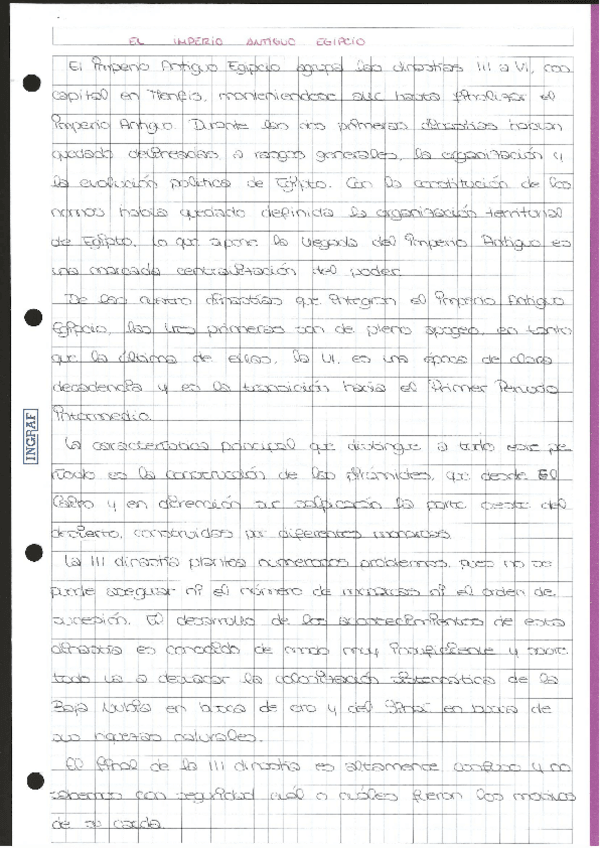 EL IMPERIO ANTIGUO EGIPCIO
El Imperio Antiguo Egipcio agrupa las dinastías III a VI, con
capital en Menfis, manteniendose así hasta finalizar el
Imperio Antiguo. Durante las dos primeras dinastías habían
quedado definidas a rasgos generales, la organización y
la evolución política de Egipto. Con la constitución de los
nomos había quedado definida la organización territorial
de Egipto, lo que aporta la llegada del Imperio Antiguo es
una marcada centralización del poder.
De las cuatro dinastías que integran el Imperio Antiguo
Egipcio, las tres primeras son de pleno apogeo, en tanto
que la última de ellas, la VI, es una época de clara
decadencia y es la transición hacia el Primer Periodo
Intermedio.
La característica principal que distingue a todo este pe
ríodo es la construcción de las pirámides, que desde El
Cairo y en dirección sur salpicarán la parte oeste del
desierto, construidas por diferentes monarcas.
La III dinastía plantea numerosos problemas, pues no se
puede asegurar ni el número de monarcas ni el orden de
sucesión. El desarrollo de los acontecimientos de esta
dinastía es conocido de modo muy insuficiente y sobre
todo va a destacar la colonización sistemática de la
Baja Nubia en busca de oro y del Sinaí en busca de
sus riquezas naturales.
El final de la III dinastía es altamente confuso y no
sabemos con seguridad cuál o cuáles fueron los motivos
de su caída.
INGRAF